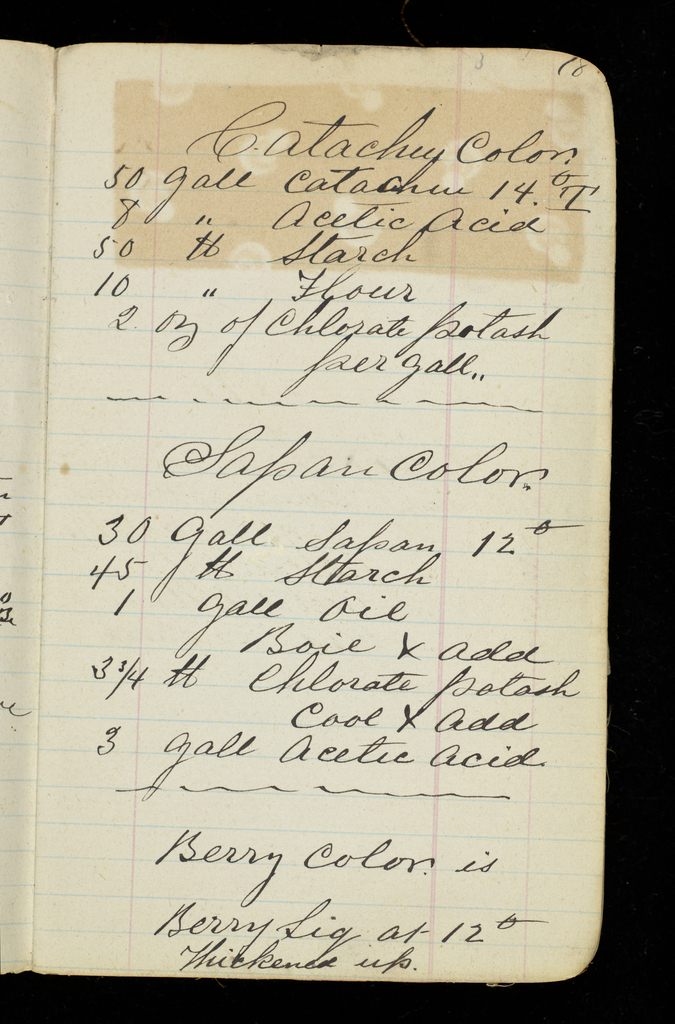 18
Catachu Color.
50 Gall Catachu 14.° T
8 " Acetic Acid
50 ℔ Starch
10 " Flour
2 oz of Chlorate potash
per gall"
Sapan Color.
30 Gall Sapan 12°
45 ℔ Starch
1 Gall Oil
Boil & add
3 3/4 ℔ Chlorate potash
Cool & add
3 Gall Acetic Acid.
Berry Color. is
Berry Liq at 12°
Thickened up.